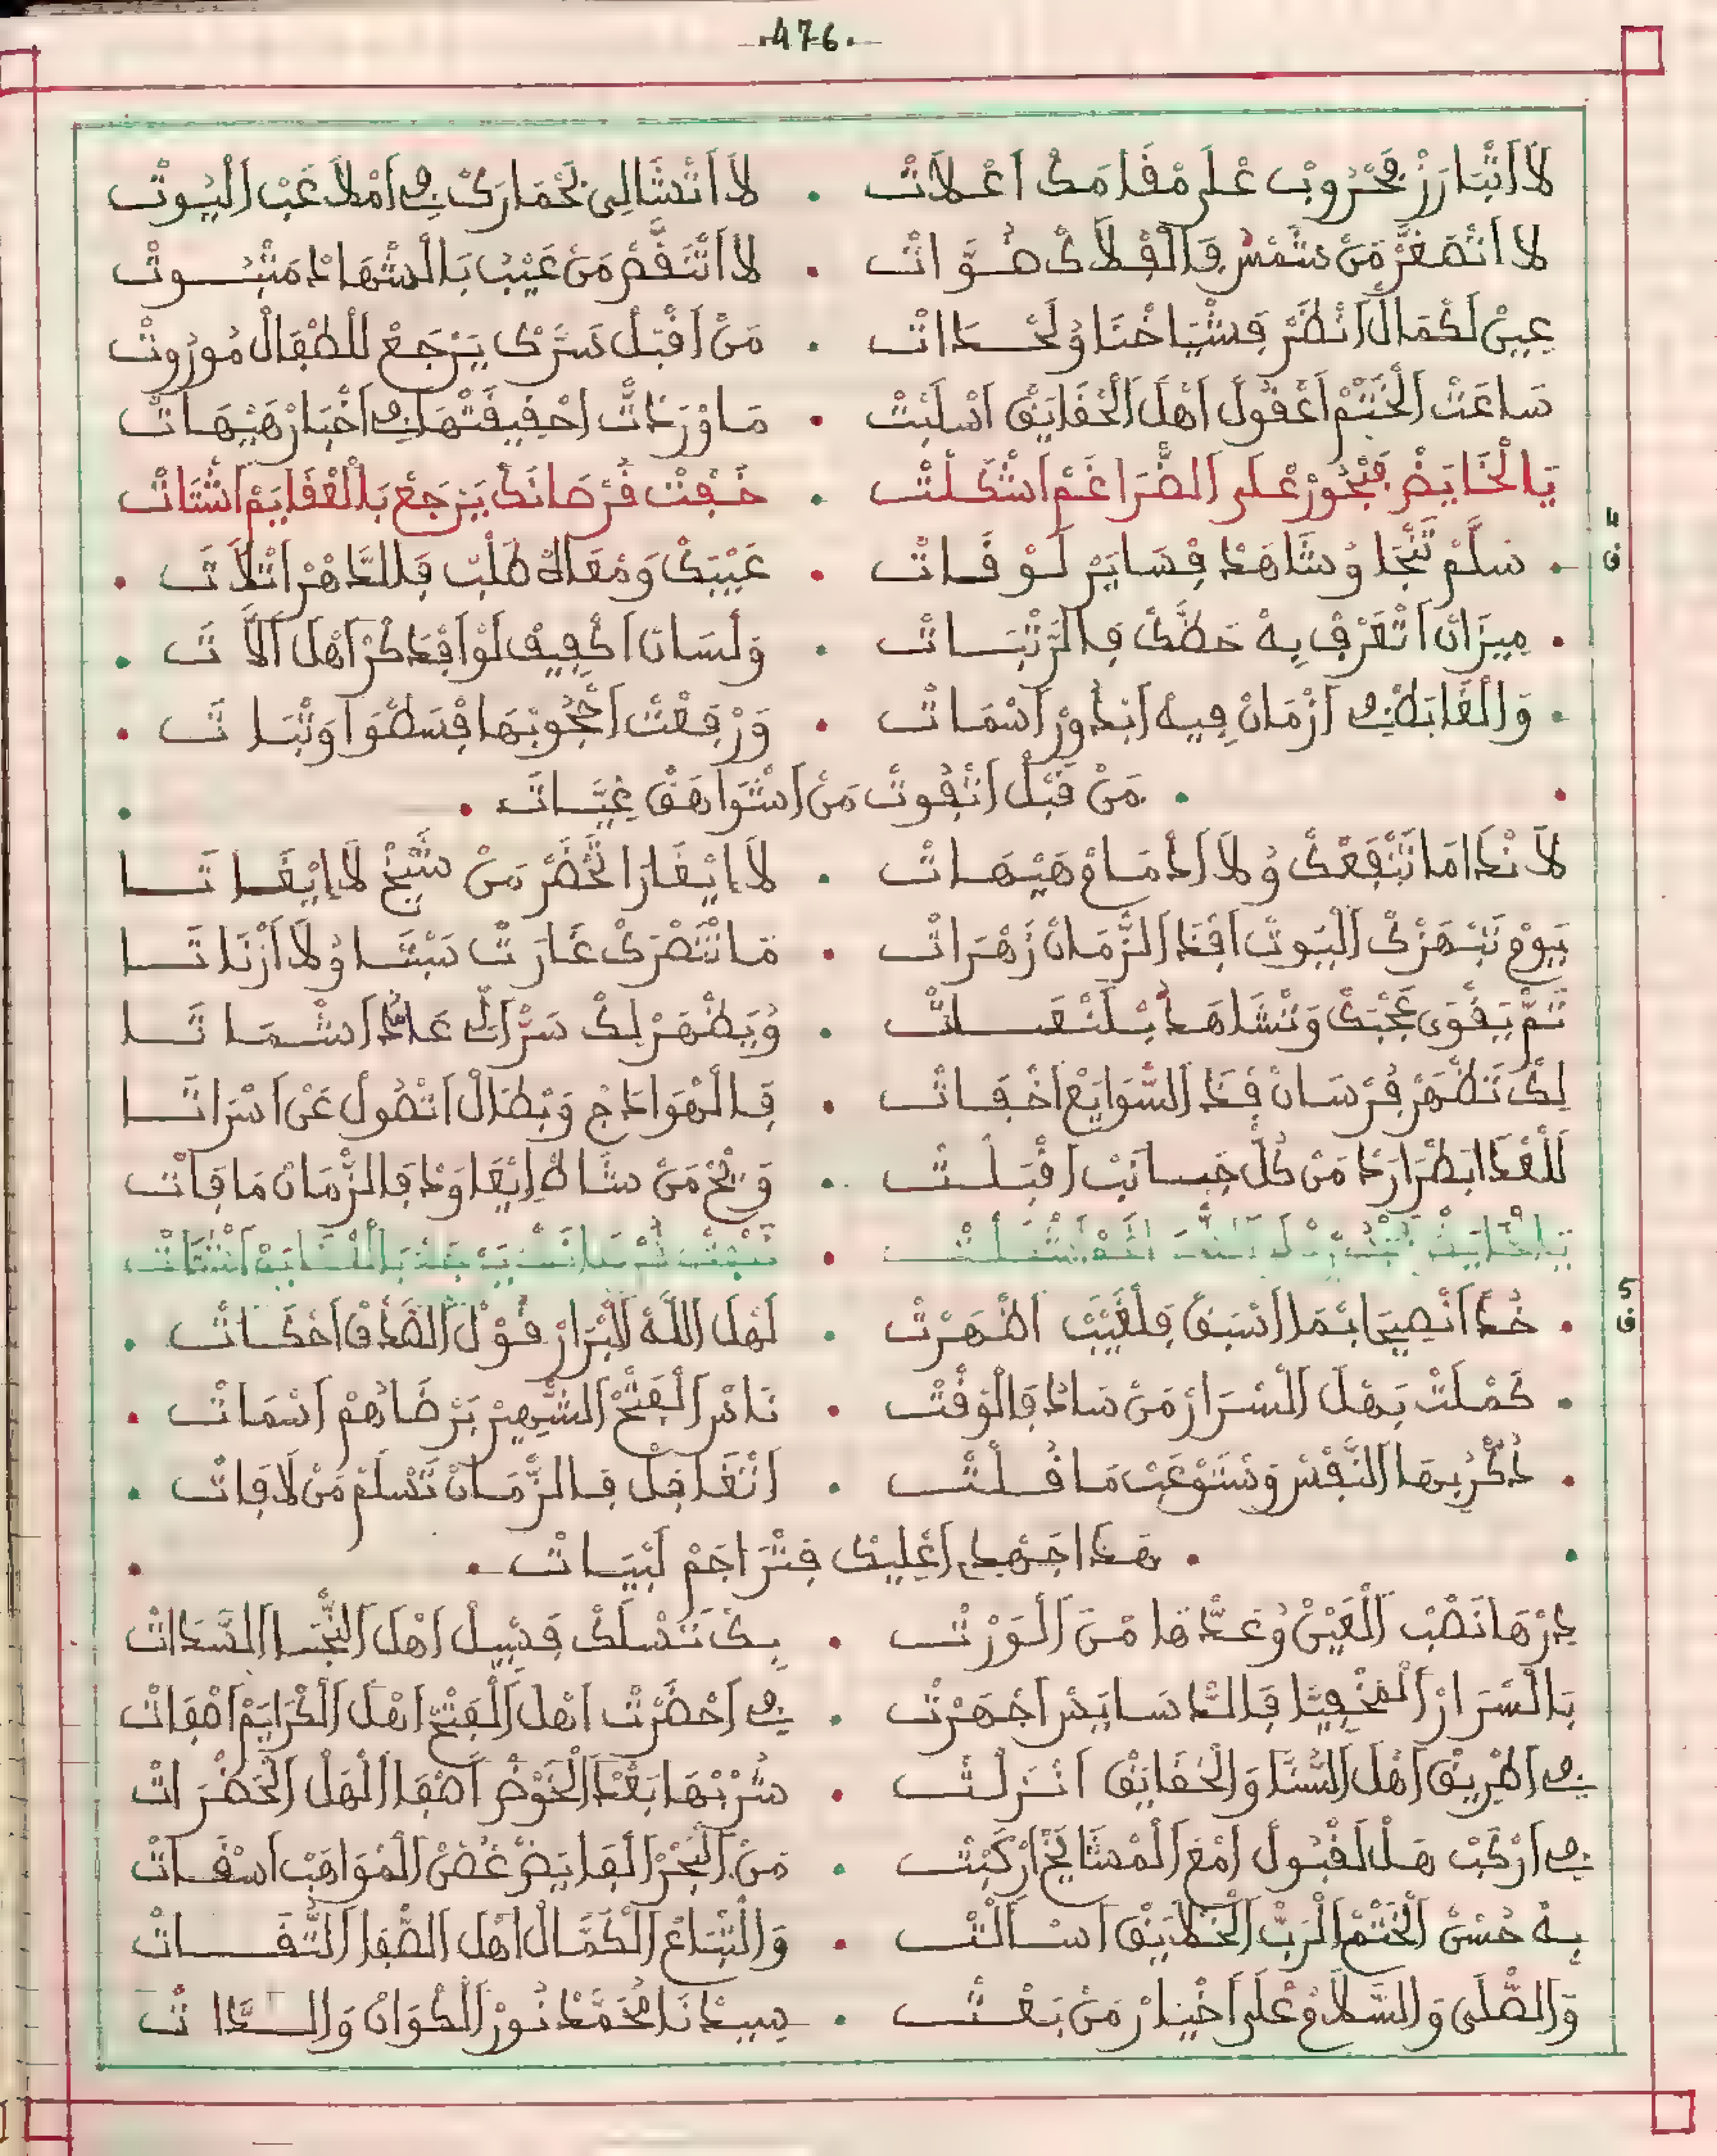 476
لَا اَتْبَارَزْ فَحْرُوبْ عْلَى مْقَامَكْ اَعْلَاتْ . لَا اَتْشَالِي بَحْمَارَكْ فِي اَمْلَا غَبْ اَلْيُوتْ
لَا اَتْصَغَّرْ مَنْ شَمْسْ فَالْفْلَاكْ ضْوَّاتْ . لَا اَتَّنَقَّصْ مَنْ غَيْبْ بَالْشْهَادْ مَثْبُوتْ
عِينْ لَكْمَالْ اَنْظَرْ فَشْيَاخْنَا وُلَحْدَاتْ . مَنْ اَقْبَلْ سَرَّكْ يَرْجَعْ لَلطْفَالْ مُورُوتْ
سَاعَتْ اَلْخَتْمْ اَعْقُولْ اَهْلْ اَلْحْقَايَقْ اَسْلَبْتْ . مَا وْرَدَاتْ اَحْقِيقَتْهَا فِي اَخْبَارْ هَيْهَاتْ
يَا لْخَايَضْ فَبْحُورْ عْلَى اَلضْرَاغَمْ اَشْكَلْتْ . خَفْتْ قُرْصَانَكْ يَرْجَعْ بَالْعْقَايَمْ اَشْتَاتْ
4
ف
. سَلَّمْ تَنْجَا وُشَاهَدْ فَسَايَرْ لَوْقَاتْ . عَيْبَكْ وَمْعَاكْ طَلْبْ فَاللَّهْرْ اَثْلَاتَ .
. مِيزَانْ اَتْعَرْفْ بِهْ حَظَّكْ فَالرَّتْبَاتْ . وَلْسَانْ اَكْفِيفْ لَوْ اَفْدَكْرْ اَهْلْ اَلَّاتَ .
. وَالْغَابَطْ فِي اَزْمَانْ فِيهْ اَبْدُورْ اَسْمَاتْ . وَرْفِعْتْ اَحْجُوبْهَا فْسَطْوَا وَثْبَاتَ .
. مَنْ قَبْلْ اَتْفُوتْ مَنْ اَشْوَاهَقْ غِيَّاتَ .
لَا نْدَامَا تَنْفَعْكْ وُلَا اَدْمَاعْ هَيْهَاتْ . لَا اِيْغَارَا تَحْضَرْ مَنْ شَيْخْ لَا اِيْغَاتَا
يَوْمْ تَبْهَرْكْ اَلْيُوتْ اَفْدَا اَلزَّمَانْ زَهْرَاتْ . مَا تْنَصْرَكْ غَارَتْ سَبْتَا وُلَا اَزْنَاتَا
تَمْ يَقْوَى عَجْبَكْ وَتْشَاهَدْ بَلَنْعَاتْ . وُيَظْهَرْ لِكْ سَرّْ اَكْ عَادْ اَشْمَاتَا
لِكْ تَظْهَرْ فُرْسَانْ فَدْ اَلسْوَايَعْ اَخْفَاتْ . فَالْهْوَادَجْ وَبْطَالْ اَتْصُولْ عَنْ اَسْرَاتَا
لَلْعْدَا بَطْرَارَدْ مَنْ كُلّْ جِسَانَبْ اَقْبَلْتْ . وَيْحْ مَنْ شَاكْ اِيْعَاوَدْ فَالزَّمَانْ مَا فَاتْ
يَا لْخَايَضْ فَبْحُورْ عْلَى اَلضْرَاغَمْ اَشْكَلْتْ . خَفْتْ قُرْصَانَكْ يَرْجَعْ بَالْعْقَايَمْ اَشْتَاتْ
5
ف
. خُدْ اَنْصِيحَا بَمَا اَسْبَقْ فَلْغَيْبْ اَظْهَرْتْ . لَهْلْ اَللَّهْ لَبْرَارْ قَوْلْ اَلصَّدْقْ اَحْكَاتْ .
. كَمْلَتْ بَهْلْ اَلْسْرَارْ مَنْ سَادْ فَالْوَقْتْ . نَاسْ اَلْفَتْحْ اَلشْهِيرْ بَرْضَاهُمْ اَسْمَاتْ .
. دُكْرْبِهَا اَلنَّفْسْ وَسْتَوْعَبْ مَا قُلْتْ . اَتْغَافَلْ فَالزَّمَانْ تَسْلَمْ مَنْ لَافَاتْ .
. هَدَا جَهْدِي اَعْلِيكْ فَتْرَاجَمْ لَبْيَاتْ .
دِرْهَا نَصْبْ اَلْعَيْنْ وُعَدّْهَا مْنَ اَلْوَرْتْ . بِكْ تَسْلَكْ فَسْبِيلْ اَهْلْ اَلنّْجَا اَلسَّدَاتْ
بَالْسْرَارْ اَلْمْخْفِيَّا فَالْدْسَايَسْ اَجْهَرْتْ . فِي اَحْضَرْتْ اَهْلْ اَلْفَتْحْ اَهْلْ اَلْكْرَايَمْ اَصْفَاتْ
فِي اَطْرِيقْ اَهْلْ اَلسُّنَّا وَالْحْقَايَقْ اَنْزَلْتْ . شُرْبْهَا بَعْدْ اَلْخَوْضْ اَصْفَا اَلْهَلْ اَلْحَضْرَاتْ
فِي اَرْكَبْ هَلْ لَقْبُولْ اَمْعَ اَلْمْشَايَخْ اَرْكَبْتْ . مَنْ اَلْبَحْرْ اَلْفَايَضْ غُصْنْ اَلْمْوَاهَبْ اَسْقَاتْ
بِهْ حُسْنْ اَلْخَتْمْ اَلْرَبّْ اَلْخْلَايَقْ اَسْأَلْتْ . وَالْتْبَاعْ اَلْكُمَّالْ اَهْلْ اَلصّْفَا اَلتّْقَاتْ
وَالصّْلَى وَالسّْلَامْ عْلَى اَخْيَارْ مَنْ بَعْتْ . سِيدْنَا مُحَمَّدْ نُورْ اَلْكْوَانْ وَالدَّاتْ